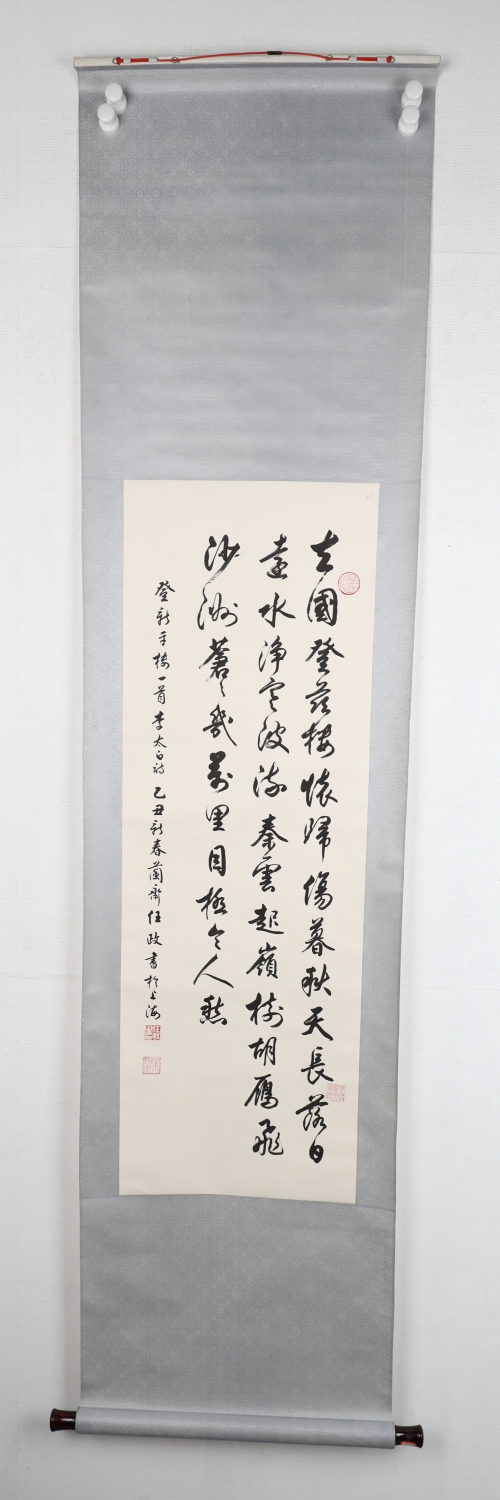 去國登茲樓懷歸傷暮秋天長落日
遠水淨寒波流秦雲起嶺樹胡鴈飛
沙洲蒼〻幾萬里目極令人愁
登新平樓一首李太白詩乙丑新春蘭齋任政書於上海